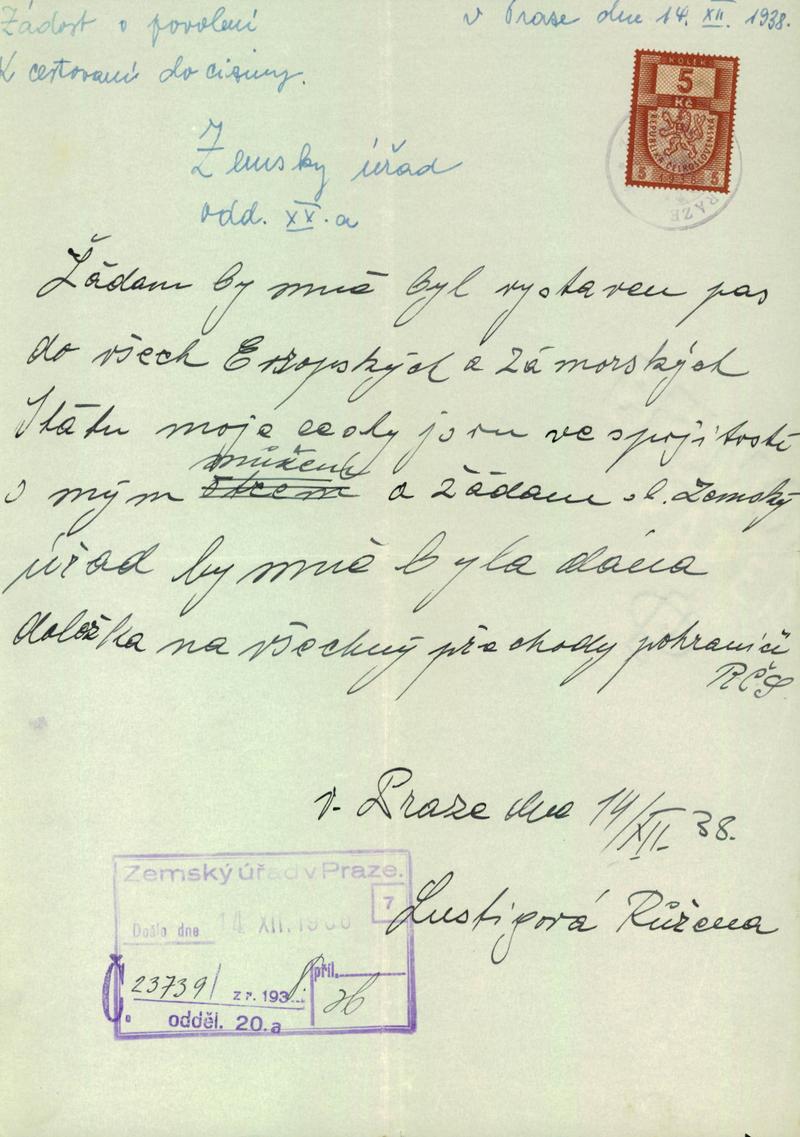 Žádost o povolení
v Praze dne 14. XII. 1938.
K cestovaní do ciziny.
KOLEK
5
Kč
REPUBLIKA ČESKOSLOVENSKÁ
5 5
PRAZE
Zemsky úřad
odd. XX. a
Žádam by mně byl vystaven pas
do všech Evropských a zámorských
Státu moje cesty jsou ve spojitosti
mužem
s mým otcem a žádam sl. Zemský
úřad by mně byla dána
doložka na všechný přechody pohraničí
RČS
v. Praze dne 14/XII. 38.
Lustigová Růžena
Zemský úřad v Praze.
7
Došlo dne 14 XII. 1938
Č. 23739/ z r. 1938. příl.
odděl. 20.a